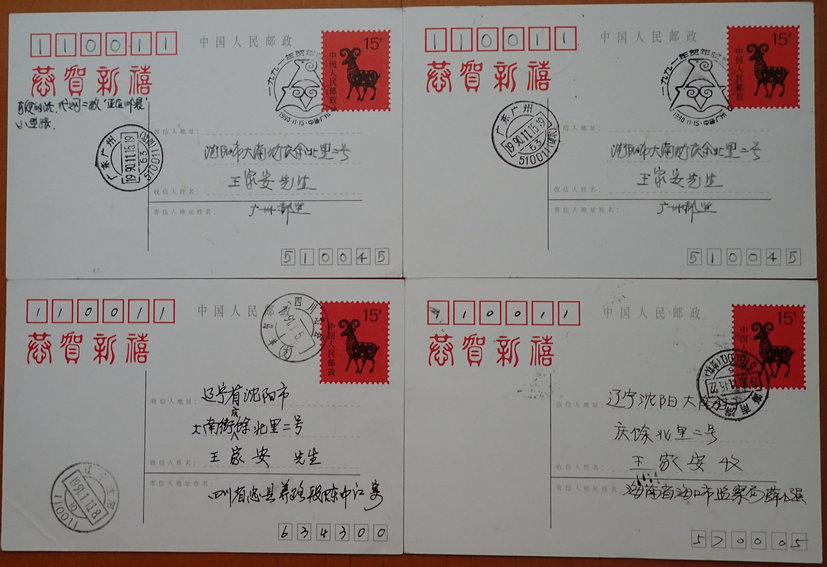 110011
中国人民邮政
15分
中国人民邮政
恭贺新禧
一九九一年贺年
1990.11.15.中国广州
小里张
广东广州
1990.11.15.19
510011
收信人地址:
沈阳市大南街庆余北里二号
王家安先生
收信人姓名:
寄信人地址姓名:
广州
510045
110011
中国人民邮政
15分
中国人民邮政
恭贺新禧
一九九一年贺年
1990.11.15.中国广州
广东广州
1990.11.15.19
510011
收信人地址:
沈阳市大南街庆余北里二号
王家安先生
收信人姓名:
寄信人地址姓名:
广州
510045
110011
中国人民邮政
四川
15分
中国人民邮政
恭贺新禧
收信人地址:
辽宁省沈阳市
大南街庆馀北里二号
王家安 先生
收信人姓名:
寄信人地址姓名:
四川省忠县
110011
634300
110011
中国人民邮政
15分
中国人民邮政
恭贺新禧
海南
收信人地址:
辽宁沈阳大南街
庆馀北里二号
王家安 收
收信人姓名:
寄信人地址姓名:
海南省海口市监察局薛
570005